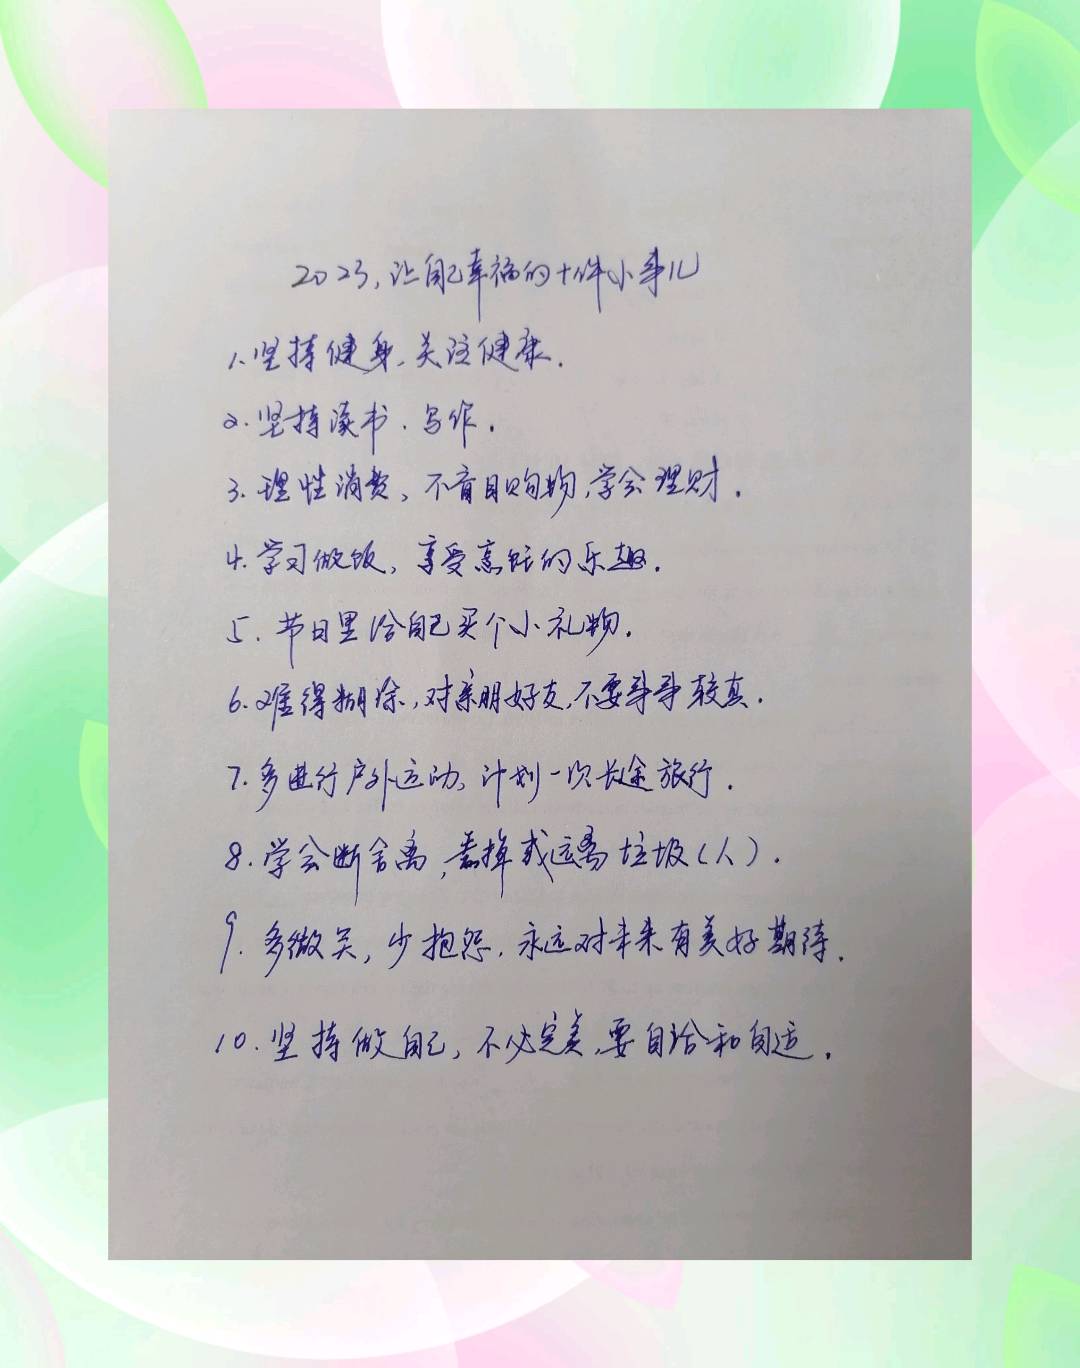 2023,让自己幸福的十件小事儿
1、坚持健身、关注健康.
2.坚持读书、写作.
3.理性消费、不盲目购物,学会理财.
4.学习做饭、享受烹饪的乐趣.
5.节日里给自己买个小礼物.
6.难得糊涂,对亲朋好友,不要事事较真.
7.多进行户外运动、计划一次长途旅行.
8.学会断舍离,丢掉或远离垃圾(人).
9.多微笑,少抱怨.永远对未来有美好期待.
10.坚持做自己,不必完美,要自洽和自适.